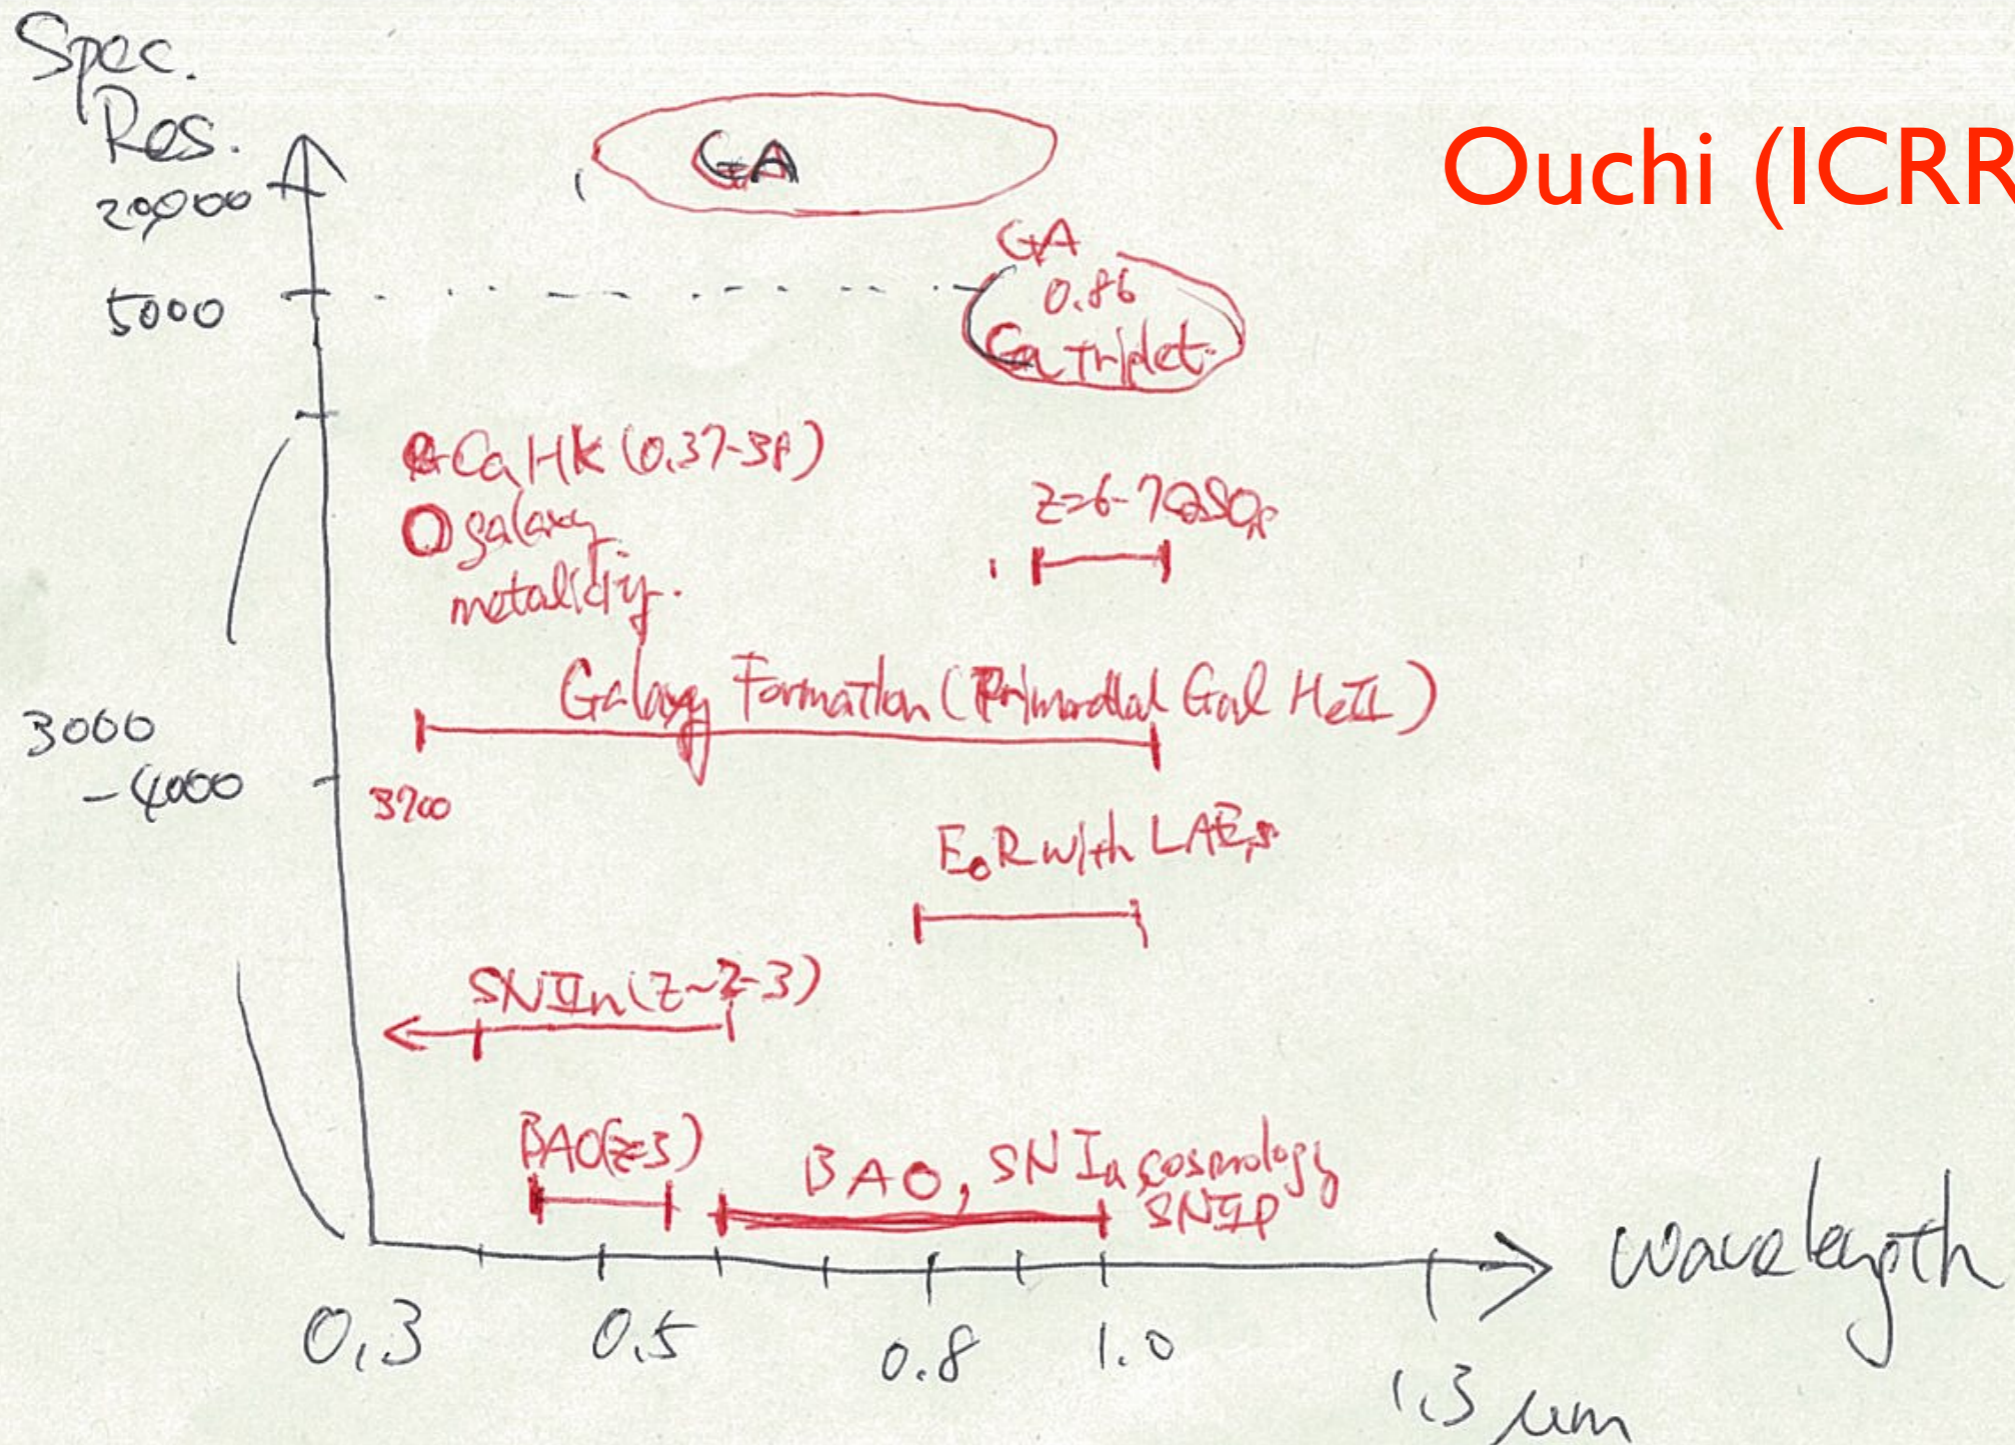 Spec.
Res.
20,000
5000
3000
-4000
Ouchi (ICRR
GA
GA
0.86
Ca Triplet
Ca HK (0.37-38)
galaxy
metallicity.
z=6-7 QSOs
Galaxy Formation (Primordial Gal HeII)
3700
EoR with LAEs
SNIIn (z~2-3)
BAO(z=3)
BAO, SNIa cosmology
SNIIP
0.3
0.5
0.8
1.0
1.3 μm
wavelength